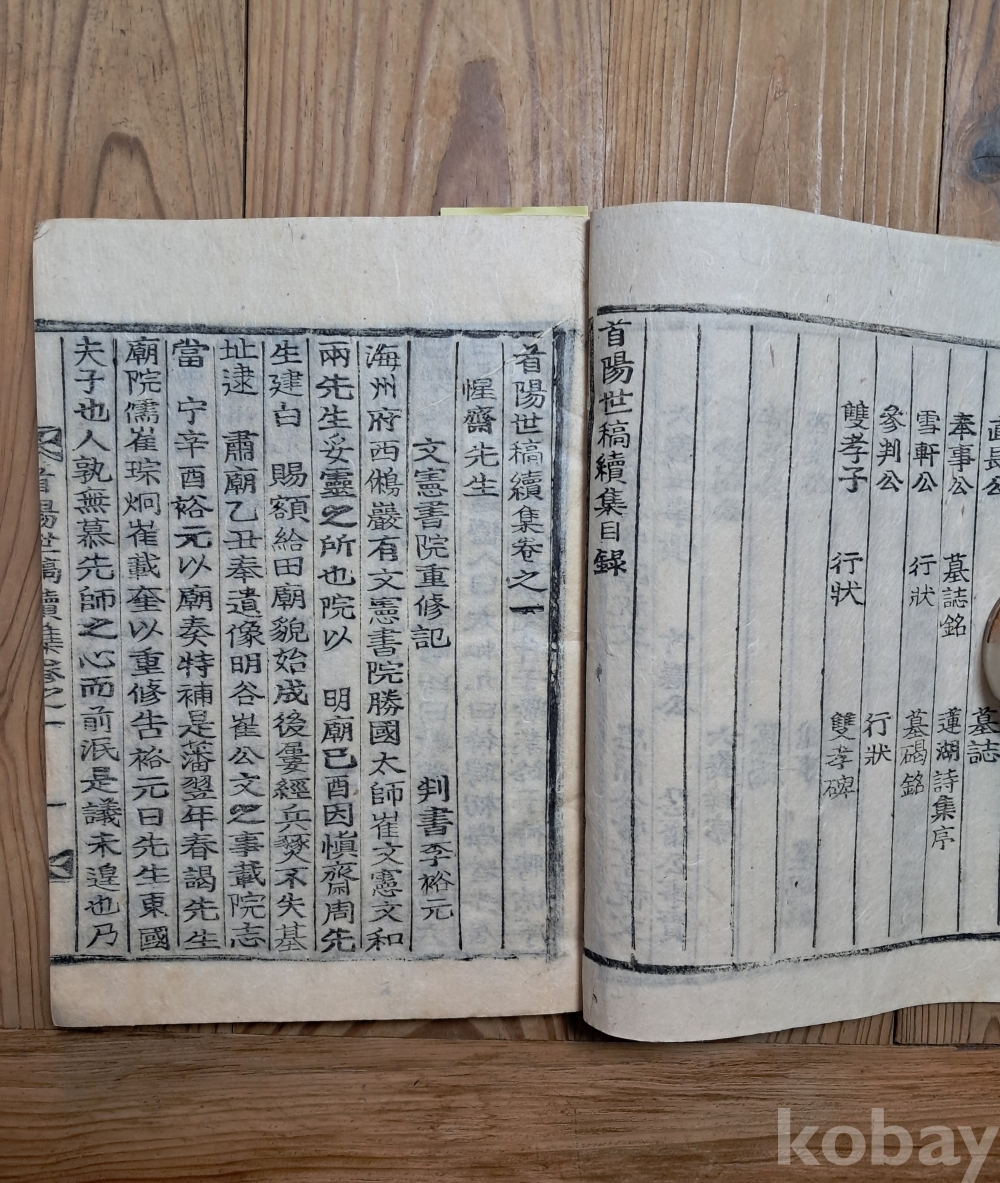 直長公
墓誌
奉事公 墓誌銘 蓮湖詩集序
雪軒公 行狀 墓碣銘
參判公 行狀
雙孝子 行狀 雙孝碑
首陽世稿續集目錄
首陽世稿續集卷之一
惺齋先生
文憲書院重修記 判書李裕元
海州府西鵂巖有文憲書院勝國太師崔文憲文和
兩先生妥靈之所也院以 明廟己酉因愼齋周先
生建白 賜額給田廟貌始成後屢經兵燹不失基
址逮 肅廟乙丑奉遺像明谷崔公文之事載院志
當 宁辛酉裕元以廟奏特補是藩翌年春謁先生
廟院儒崔琮炯崔載奎以重修告裕元曰先生東國
夫子也人孰無慕先師之心而前泯是議未遑也乃
首陽世稿續集卷之一
kobay